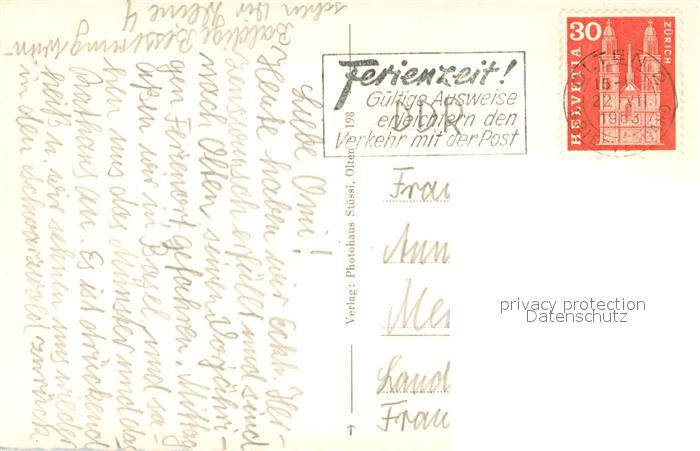 Liebe Omi!
Heute haben wir Eckh. Her-
zenswunsch erfüllt und sind
nach Olten, seinem vorjähri-
gen Ferienort gefahren. Mittag
aßen wir in Basel und sa-
hen uns das Münster und das
Rathaus an. Es ist drückend
heiß u. wir sehnen uns wieder
in den Schwarzwald zurück.
Baldige Besserung wün-
schen Dir Deine 4
Verlag: Photohaus Stüssi, Olten 198
Ferienzeit!
Gültige Ausweise
erleichtern den
Verkehr mit der Post
DDR
30
HELVETIA
ZÜRICH
OLTEN 2
15-
22 VII
1963
Frau
Ann
Me
Land
Fran
privacy protection
Datenschutz